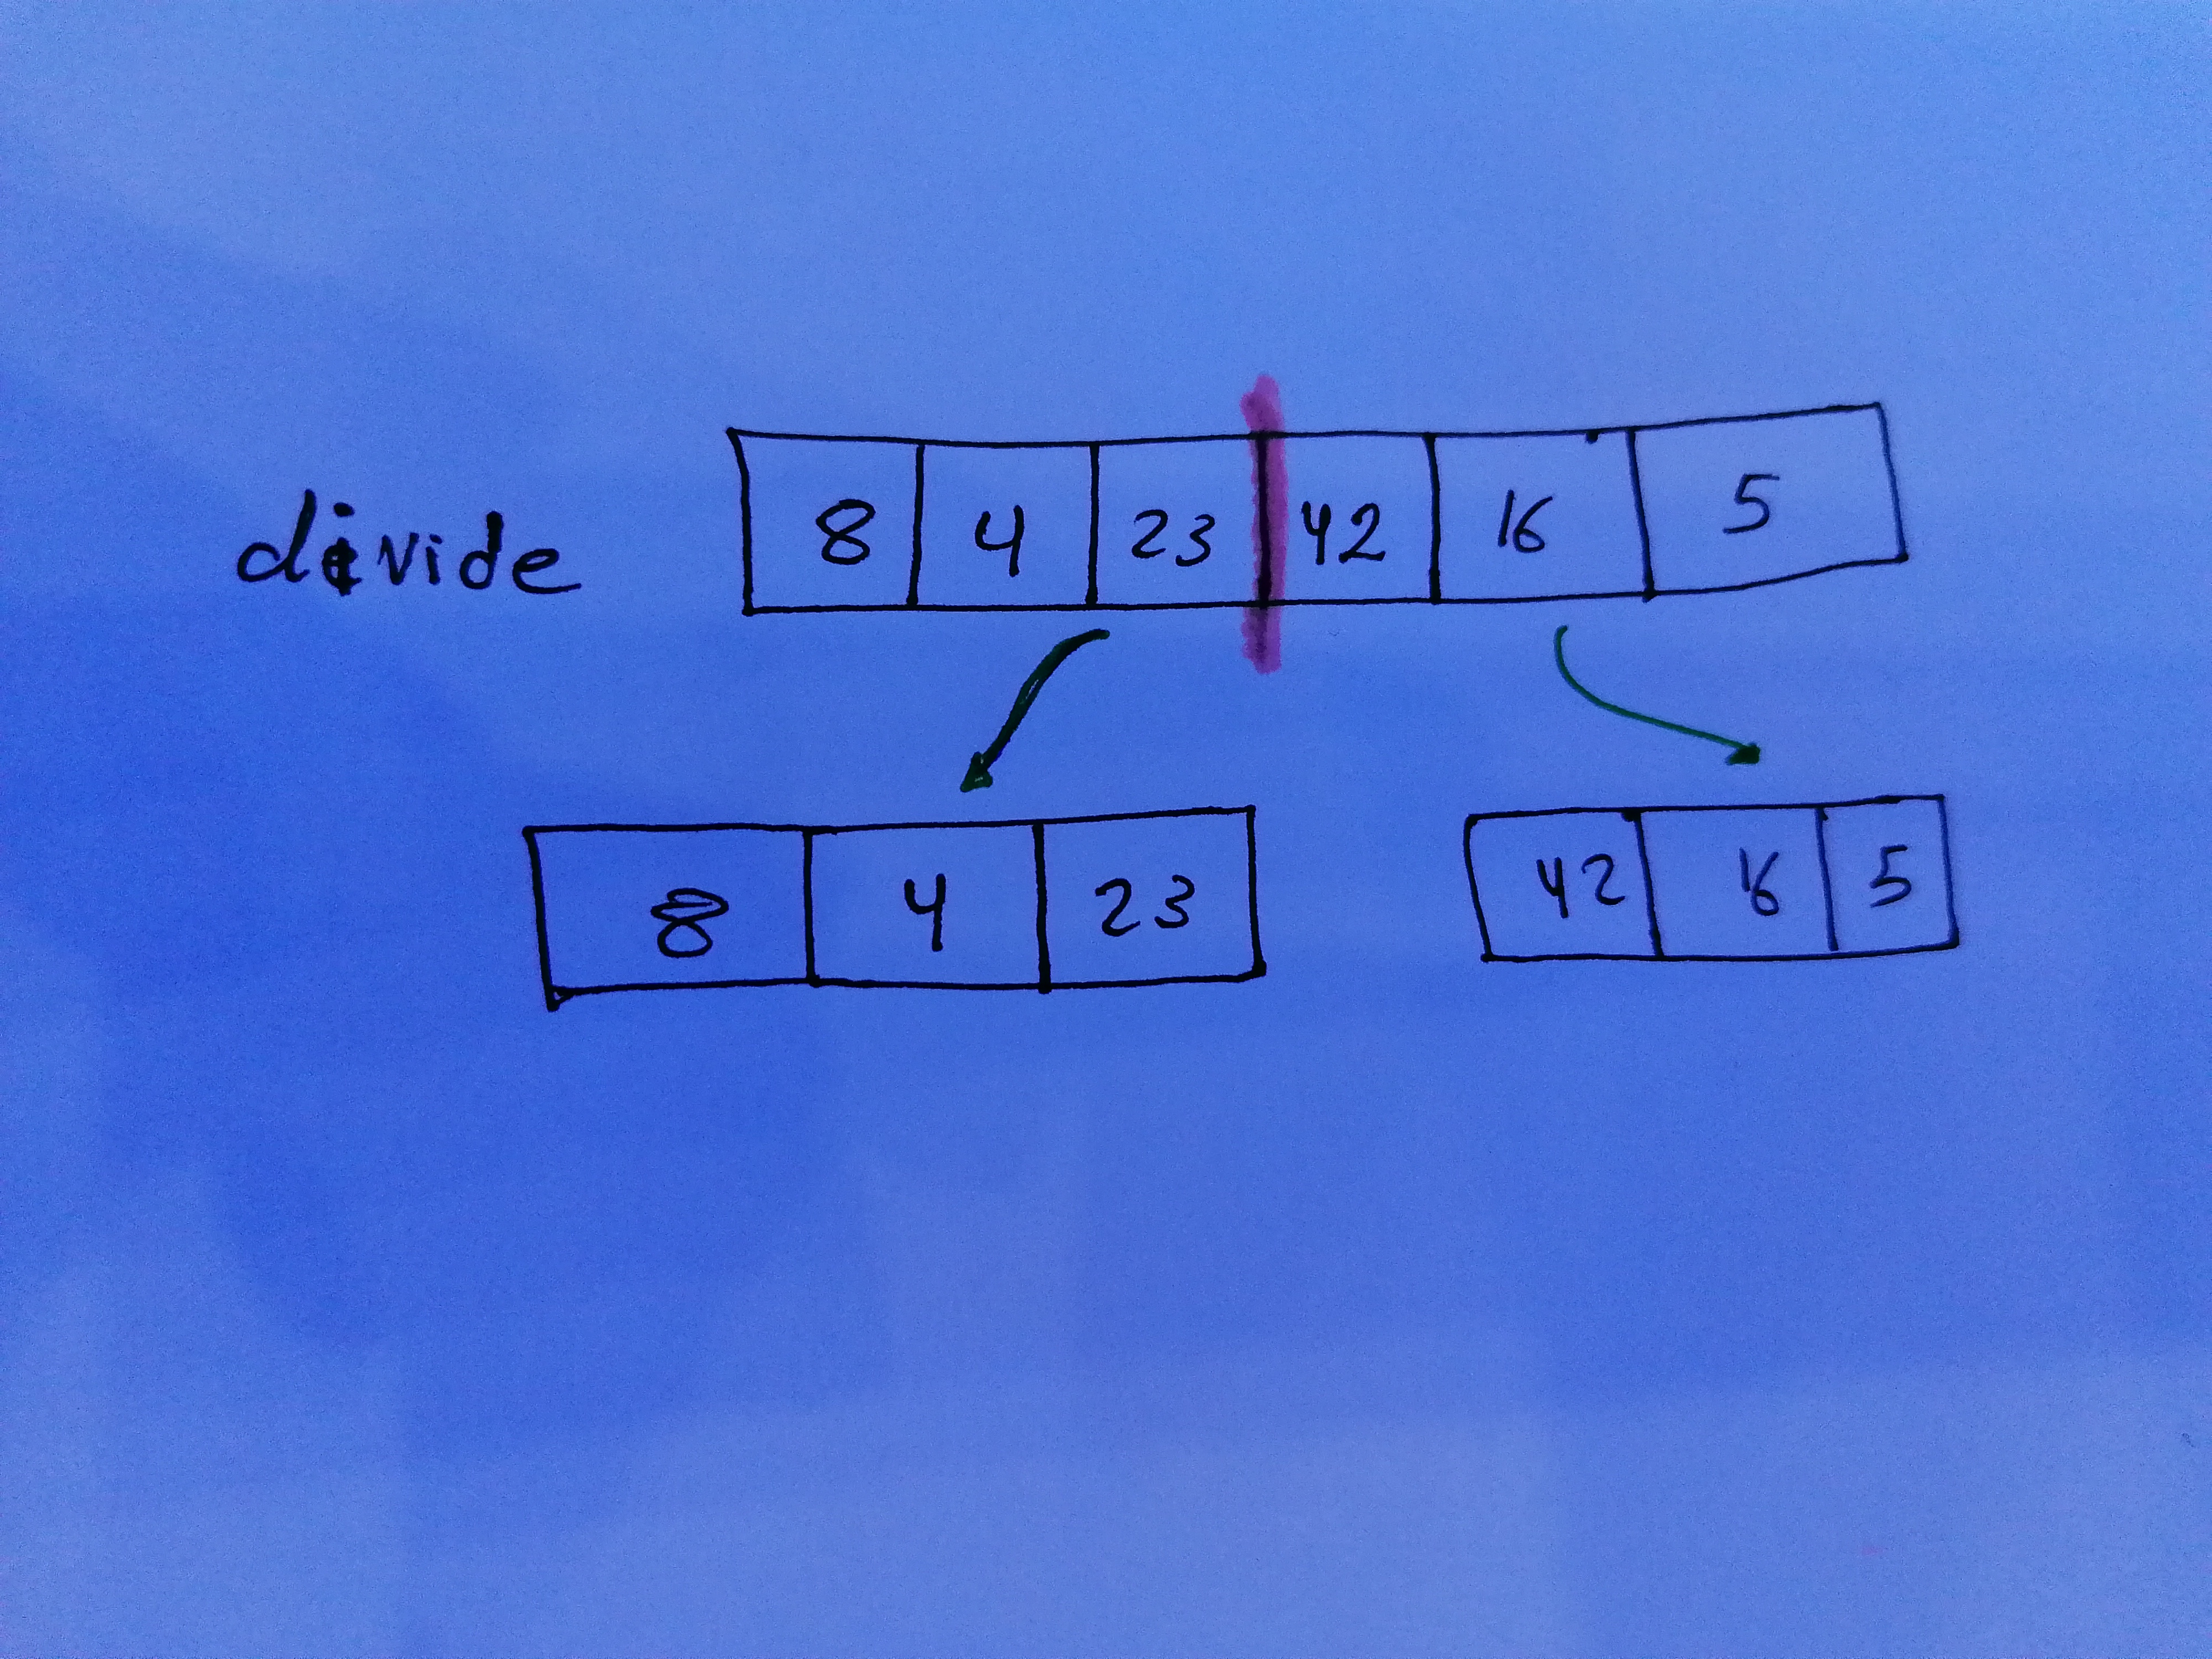 divide 8 4 23 42 16 5
8 4 23 42 16 5